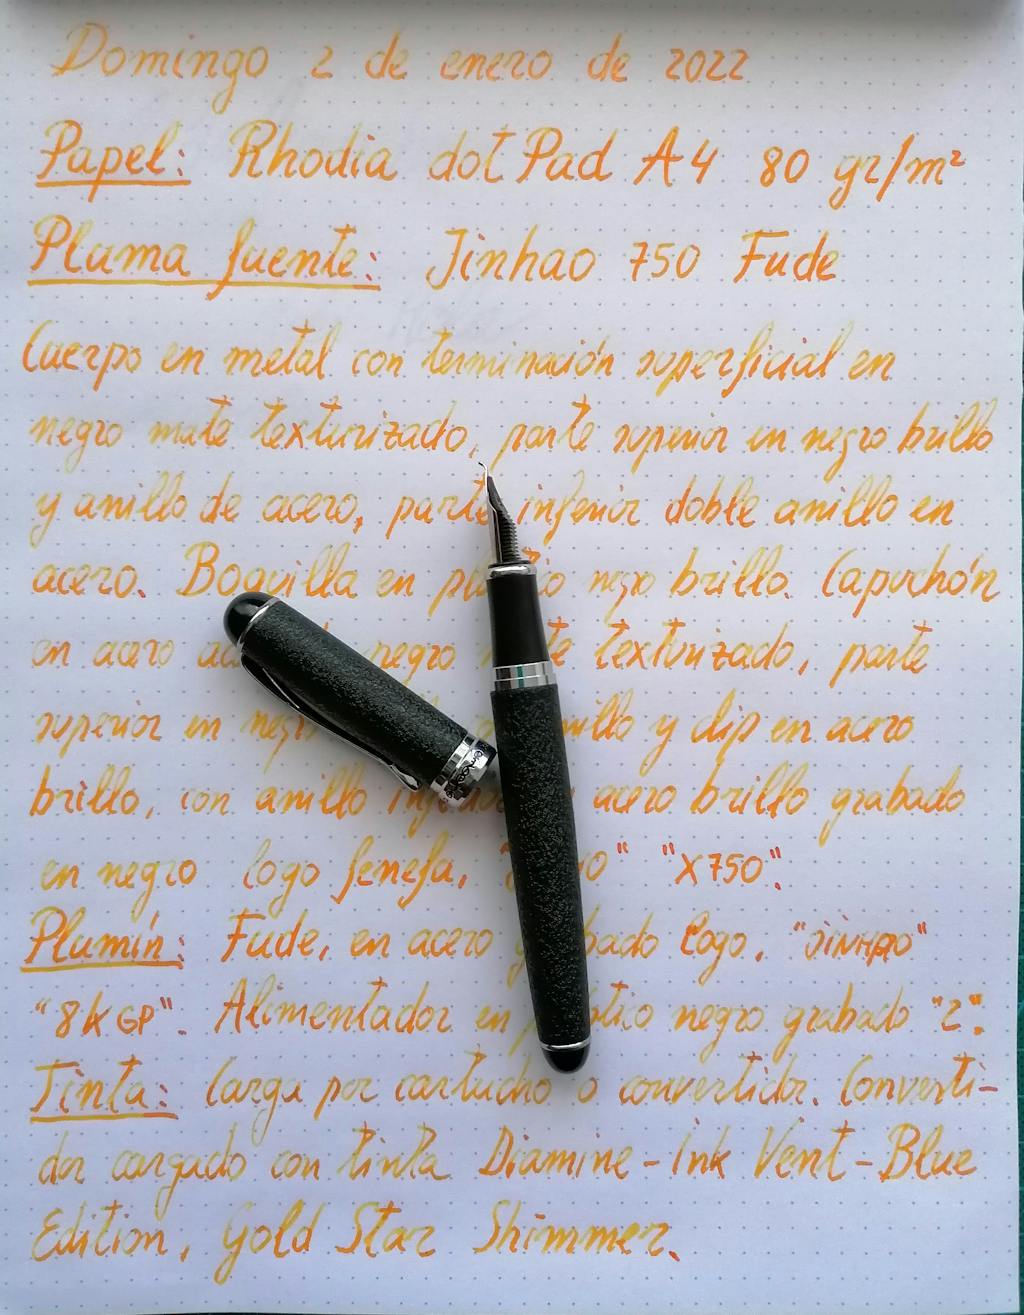 Domingo 2 de enero de 2022
Papel: Rhodia dot Pad A4 80 gr/m²
Pluma fuente: Jinhao 750 Fude
Cuerpo en metal con terminación superficial en
negro mate texturizado, parte superior en negro brillo
y anillo de acero, parte inferior doble anillo en
acero. Boquilla en negro brillo. Capuchón
en acero negro texturizado, parte
superior en anillo y clip en acero
brillo, con anillo acero brillo grabado
en negro logo Jenefa, "X750".
Plumín: Fude, en acero logo. "JINHAO"
"8KGP". Alimentador en negro grabado "2".
Tinta: Carga por cartucho o convertidor. Converti-
dor cargado con tinta Diamine - Ink Vent - Blue
Edition, Gold Star Shimmer.